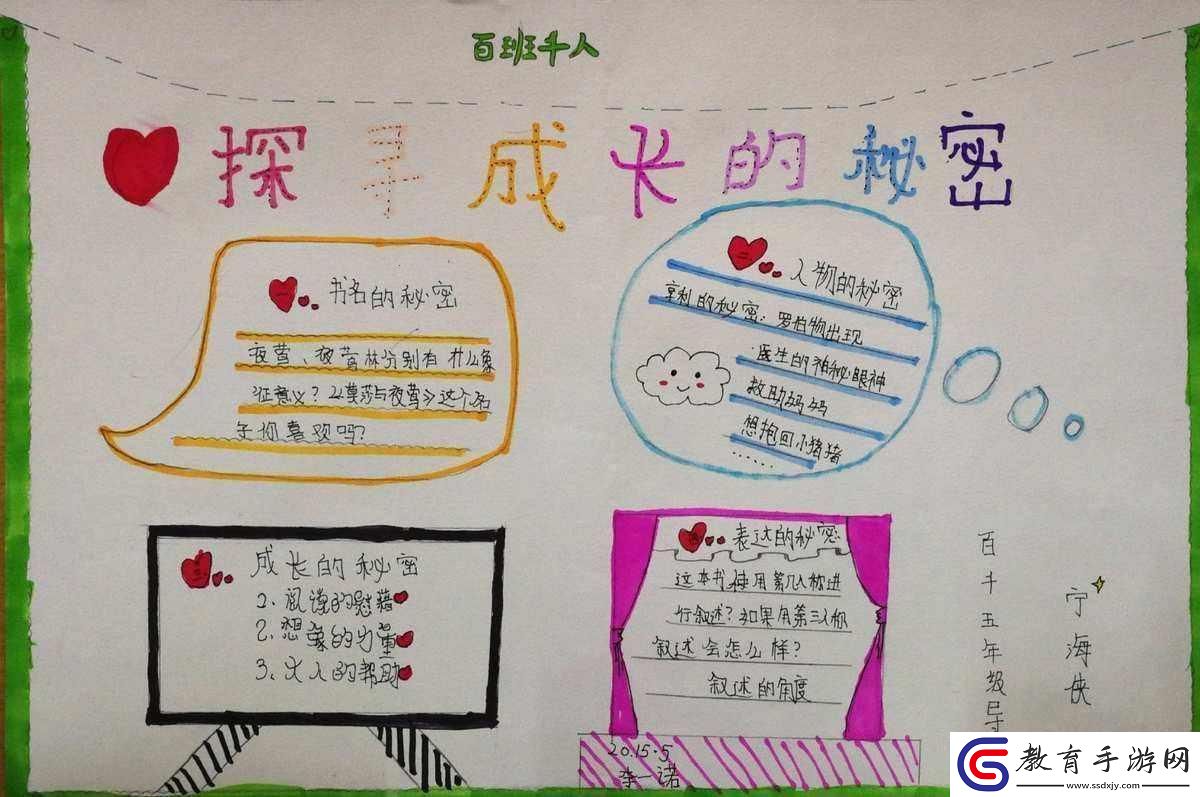 百班千人
探寻成长的秘密
一
书名的秘密
夜莺、夜莺林分别有什么象
征意义?《莫莎与夜莺》这个名
字你喜欢吗?
二
人物的秘密
亨利的秘密:罗伯物出现
医生的神秘眼神
救助妈妈
想抱回小猪猪
……
三
成长的秘密
1、阅读的慰藉
2、想象的力量
3、大人的帮助
四
表达的秘密
这本书使用第几人称进
行叙述?如果用第三人称
叙述会怎么样?
叙述的角度
2015.5
李一诺
百千五年级导
宁海侠
教育手游网
www.ssdxjy.com